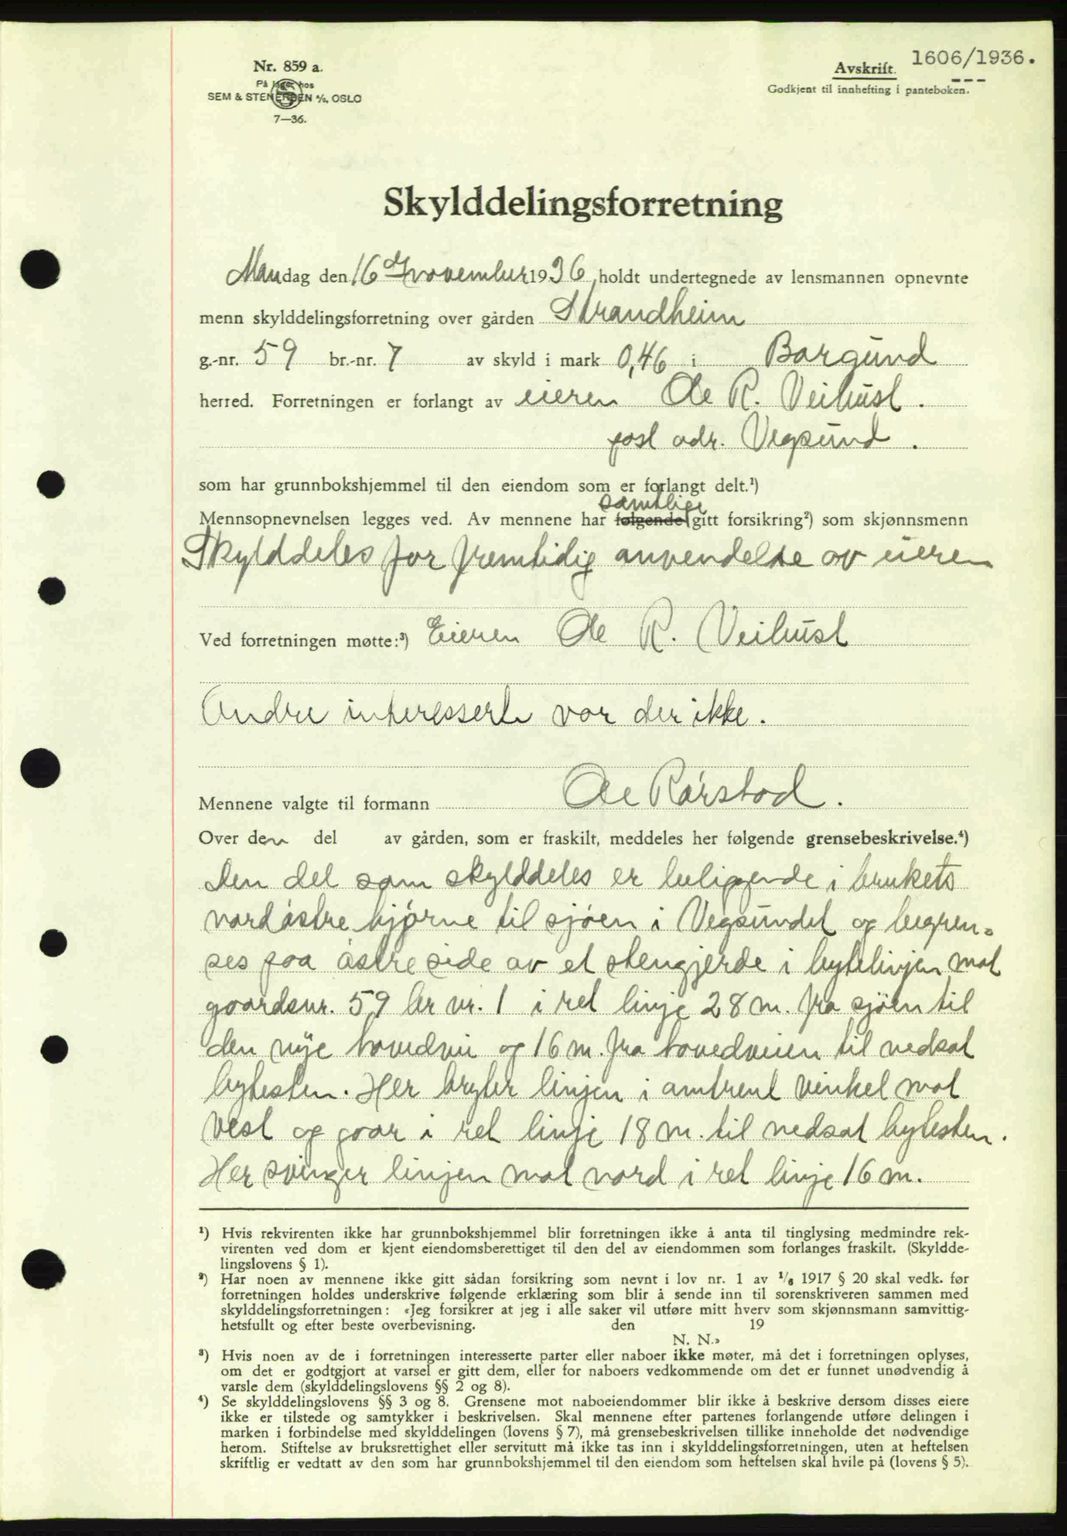 1606/1936.
Nr. 859 a.
På lager hos
SEM & STENERSEN A/S, OSLO
7—36.
Avskrift.
Godkjent til innhefting i panteboken.
Skylddelingsforretning
Mandag den 16 de november 1936, holdt undertegnede av lensmannen opnevnte
menn skylddelingsforretning over gården Strandheim
g.-nr. 59 br.-nr. 7 av skyld i mark 0,46 i Borgund
herred. Forretningen er forlangt av eieren Ole R. Veihust.
post adr. Vegsund.
som har grunnbokshjemmel til den eiendom som er forlangt delt.¹)
samtlige
Mennsopnevnelsen legges ved. Av mennene har følgende gitt forsikring²) som skjønnsmenn
Skylddeles for fremtidig anvendelse av eieren
Ved forretningen møtte:³) Eieren Ole R. Veihust
Andre interesserte var der ikke.
Mennene valgte til formann Ole Rørstad.
Over den del av gården, som er fraskilt, meddeles her følgende grensebeskrivelse.⁴)
Den del som skylddeles er beliggende i brukets
nordøstre hjørne til sjøen i Vegsundet og begren=
ses paa østre side av et stengjerde i bytelinjen mot
gaardsnr. 59 br nr. 1 i ret linje 28 m. fra sjøen til
den nye hovedvei og 16 m. fra hovedveien til nedsat
bytesten. Her bryter linjen i omtrent vinkel mot
Vest og gaar i ret linje 18 m. til nedsat bytesten.
Her svinger linjen mot nord i ret linje 16 m.
¹) Hvis rekvirenten ikke har grunnbokshjemmel blir forretningen ikke å anta til tinglysing medmindre rek-
virenten ved dom er kjent eiendomsberettiget til den del av eiendommen som forlanges fraskilt. (Skyldde-
lingslovens § 1).
²) Har noen av mennene ikke gitt sådan forsikring som nevnt i lov nr. 1 av 1/6 1917 § 20 skal vedk. før
forretningen holdes underskrive følgende erklæring som blir å sende inn til sorenskriveren sammen med
skylddelingsforretningen: «Jeg forsikrer at jeg i alle saker vil utføre mitt hverv som skjønnsmann samvittig-
hetsfullt og efter beste overbevisning. den 19
N. N.»
³) Hvis noen av de i forretningen interesserte parter eller naboer ikke møter, må det i forretningen oplyses,
om det er godtgjort at varsel er gitt dem, eller for naboers vedkommende om det er funnet unødvendig å
varsle dem (skylddelingslovens §§ 2 og 8).
⁴) Se skylddelingslovens §§ 3 og 8. Grensene mot naboeiendommer blir ikke å beskrive dersom disses eiere
ikke er tilstede og samtykker i beskrivelsen. Skal mennene efter partenes forlangende utføre delingen i
marken i forbindelse med skylddelingen (lovens § 7), må grensebeskrivelsen tillike inneholde det nødvendige
herom. Stiftelse av bruksrettighet eller servitutt må ikke tas inn i skylddelingsforretningen, uten at heftelsen
skriftlig er vedtatt av den som har grunnbokshjemmel til den eiendom som heftelsen skal hvile på (lovens § 5).